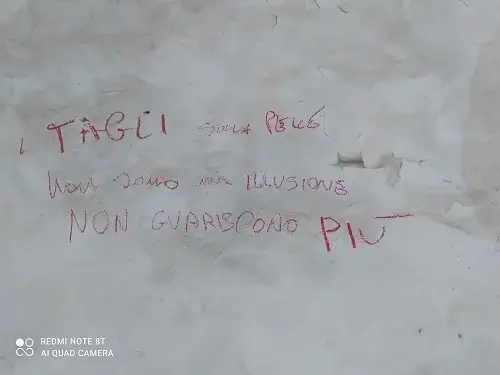 I TAGLI SULLA PELLE
NON SONO UNA ILLUSIONE
NON GUARISCONO PIÙ
REDMI NOTE 8T
AI QUAD CAMERA